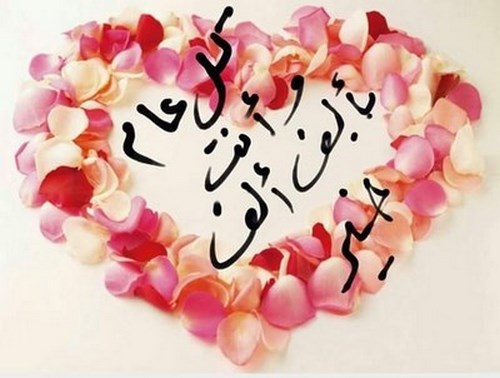 كل عام
و أنت
بألف ألف
خير